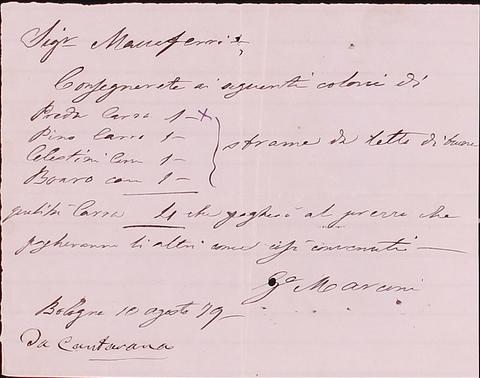 Sigr Manferrari
Consegnerete ai seguenti coloni di
Preda Carra 1 - x
Pino Carra 1 -
Celestini Carra 1 -
Boaro Carra 1 -
strame da letto di buona
qualità Carra 4 che pagherò al prezzo che
pagheranno li altri come essi convenuti —
Ga Marconi
Bologna 10 agosto 79 -
Da Cantarana